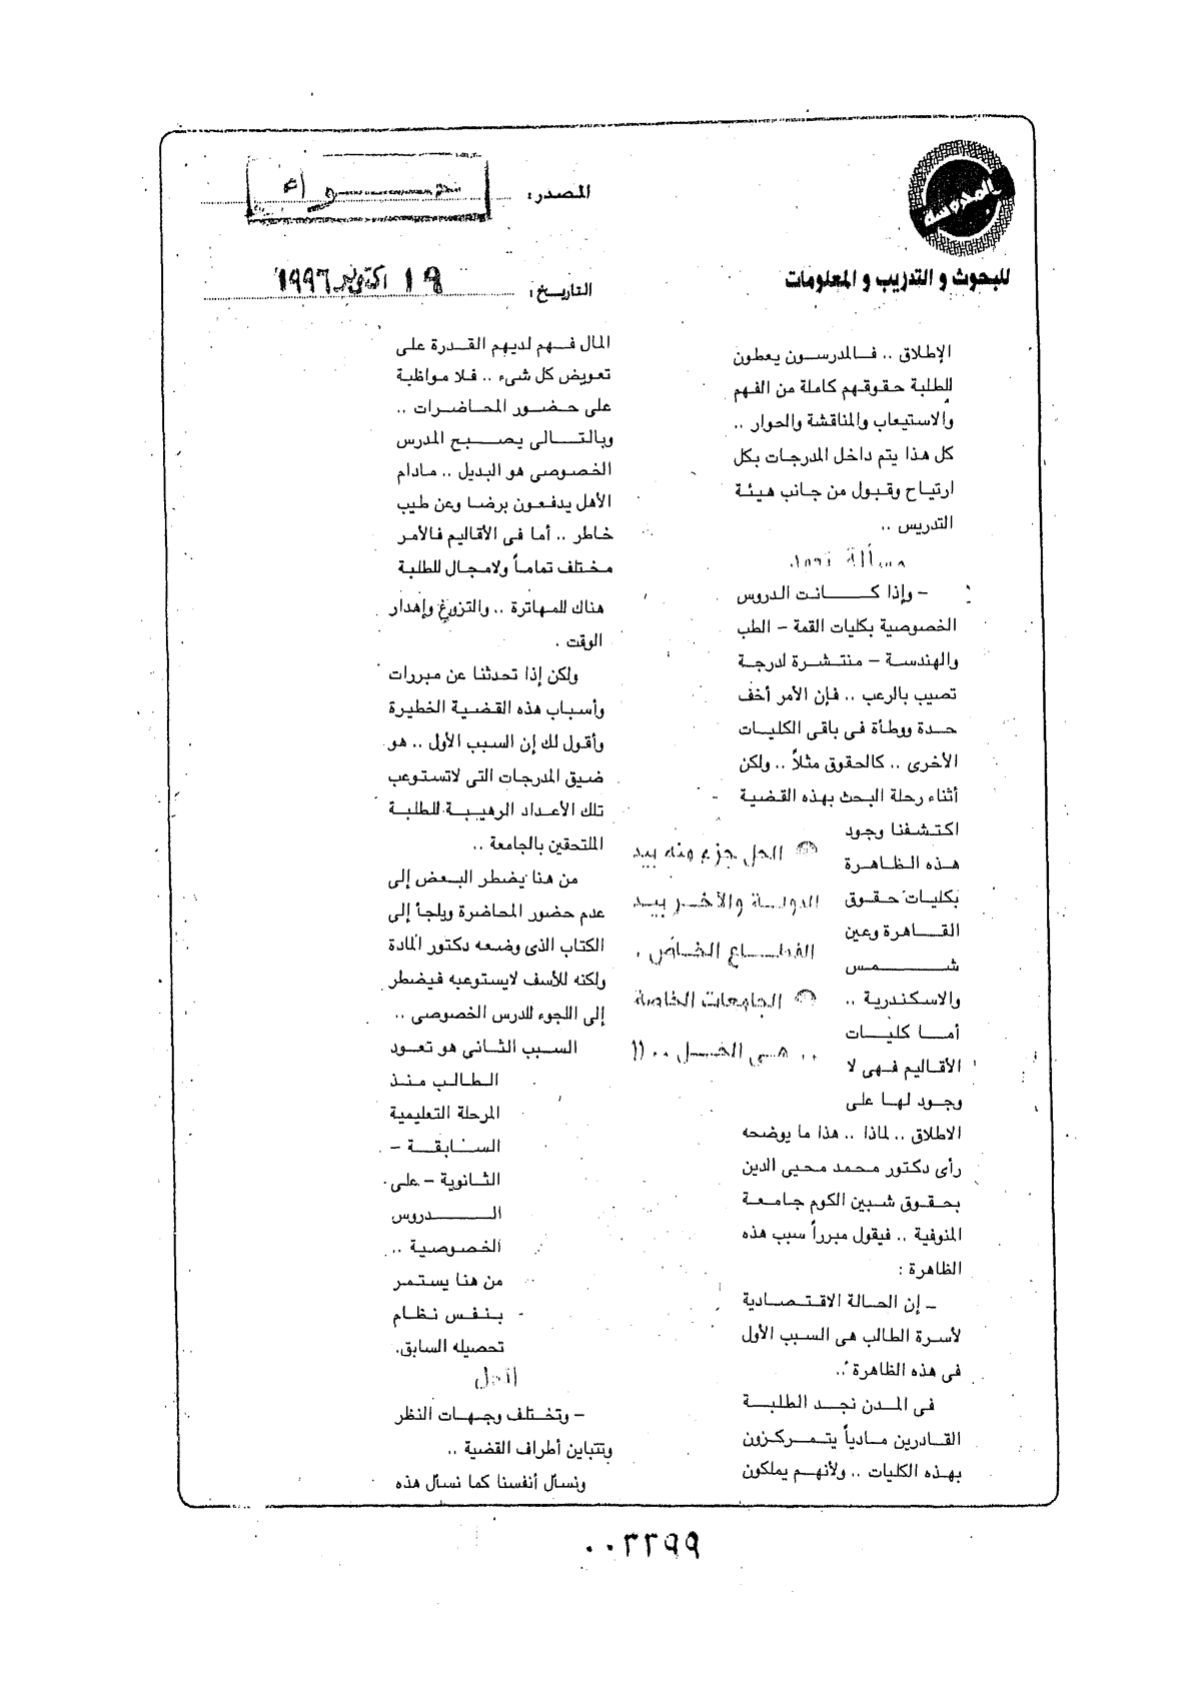 المصدر: حواء
للبحوث و التدريب و المعلومات
التاريخ: 19 أكتوبر 1996
الإطلاق .. فالمدرسون يعطون
للطلبة حقوقهم كاملة من الفهم
والاستيعاب والمناقشة والحوار ..
كل هذا يتم داخل المدرجات بكل
ارتياح وقبول من جانب هيئة
التدريس ..
مسألة
– وإذا كانت الدروس
الخصوصية بكليات القمة – الطب
والهندسة – منتشرة لدرجة
تصيب بالرعب .. فإن الأمر أخف
حدة ووطأة فى باقى الكليات
الأخرى .. كالحقوق مثلاً .. ولكن
أثناء رحلة البحث بهذه القضية
اكتشفنا وجود
هذه الظاهرة
بكليات حقوق
القاهرة وعين
شمس
والاسكندرية ..
أما كليات
الأقاليم فهى لا
وجود لها على
الاطلاق .. لماذا .. هذا ما يوضحه
رأى دكتور محمد محيى الدين
بحقوق شبين الكوم جامعة
المنوفية .. فيقول مبرراً سبب هذه
الظاهرة :
– إن الحالة الاقتصادية
لأسرة الطالب هى السبب الأول
فى هذه الظاهرة ..
فى المدن نجد الطلبة
القادرين مادياً يتمركزون
بهذه الكليات .. ولأنهم يملكون
الحل جزء منه بيد
الدولة والآخر بيد
القطاع الخاص .
الجامعات الخاصة
.. هى الحل .. !!
المال فهم لديهم القدرة على
تعويض كل شىء .. فلا مواظبة
على حضور المحاضرات ..
وبالتالى يصبح المدرس
الخصوصى هو البديل .. مادام
الأهل يدفعون برضا وعن طيب
خاطر .. أما فى الأقاليم فالأمر
مختلف تماماً ولامجال للطلبة
هناك للمهاترة .. والتزويغ وإهدار
الوقت .
ولكن إذا تحدثنا عن مبررات
وأسباب هذه القضية الخطيرة
وأقول لك إن السبب الأول .. هو
ضيق المدرجات التى لاتستوعب
تلك الأعداد الرهيبة للطلبة
الملتحقين بالجامعة ..
من هنا يضطر البعض إلى
عدم حضور المحاضرة ويلجأ إلى
الكتاب الذى وضعه دكتور المادة
ولكنه للأسف لايستوعبه فيضطر
إلى اللجوء للدرس الخصوصى ..
السبب الثانى هو تعود
الطالب منذ
المرحلة التعليمية
السابقة –
الثانوية – على
الدروس
الخصوصية ..
من هنا يستمر
بنفس نظام
تحصيله السابق.
الحل
– وتختلف وجهات النظر
وتتباين أطراف القضية ..
ونسأل أنفسنا كما نسأل هذه
٠٠٣٢٩٩